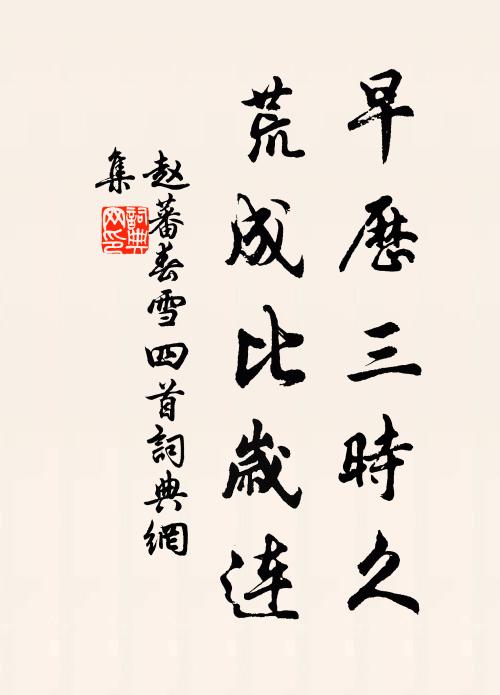 早歷三時久
荒成比歲連
赵蕃春雪四首詞典網
集
詞典网印